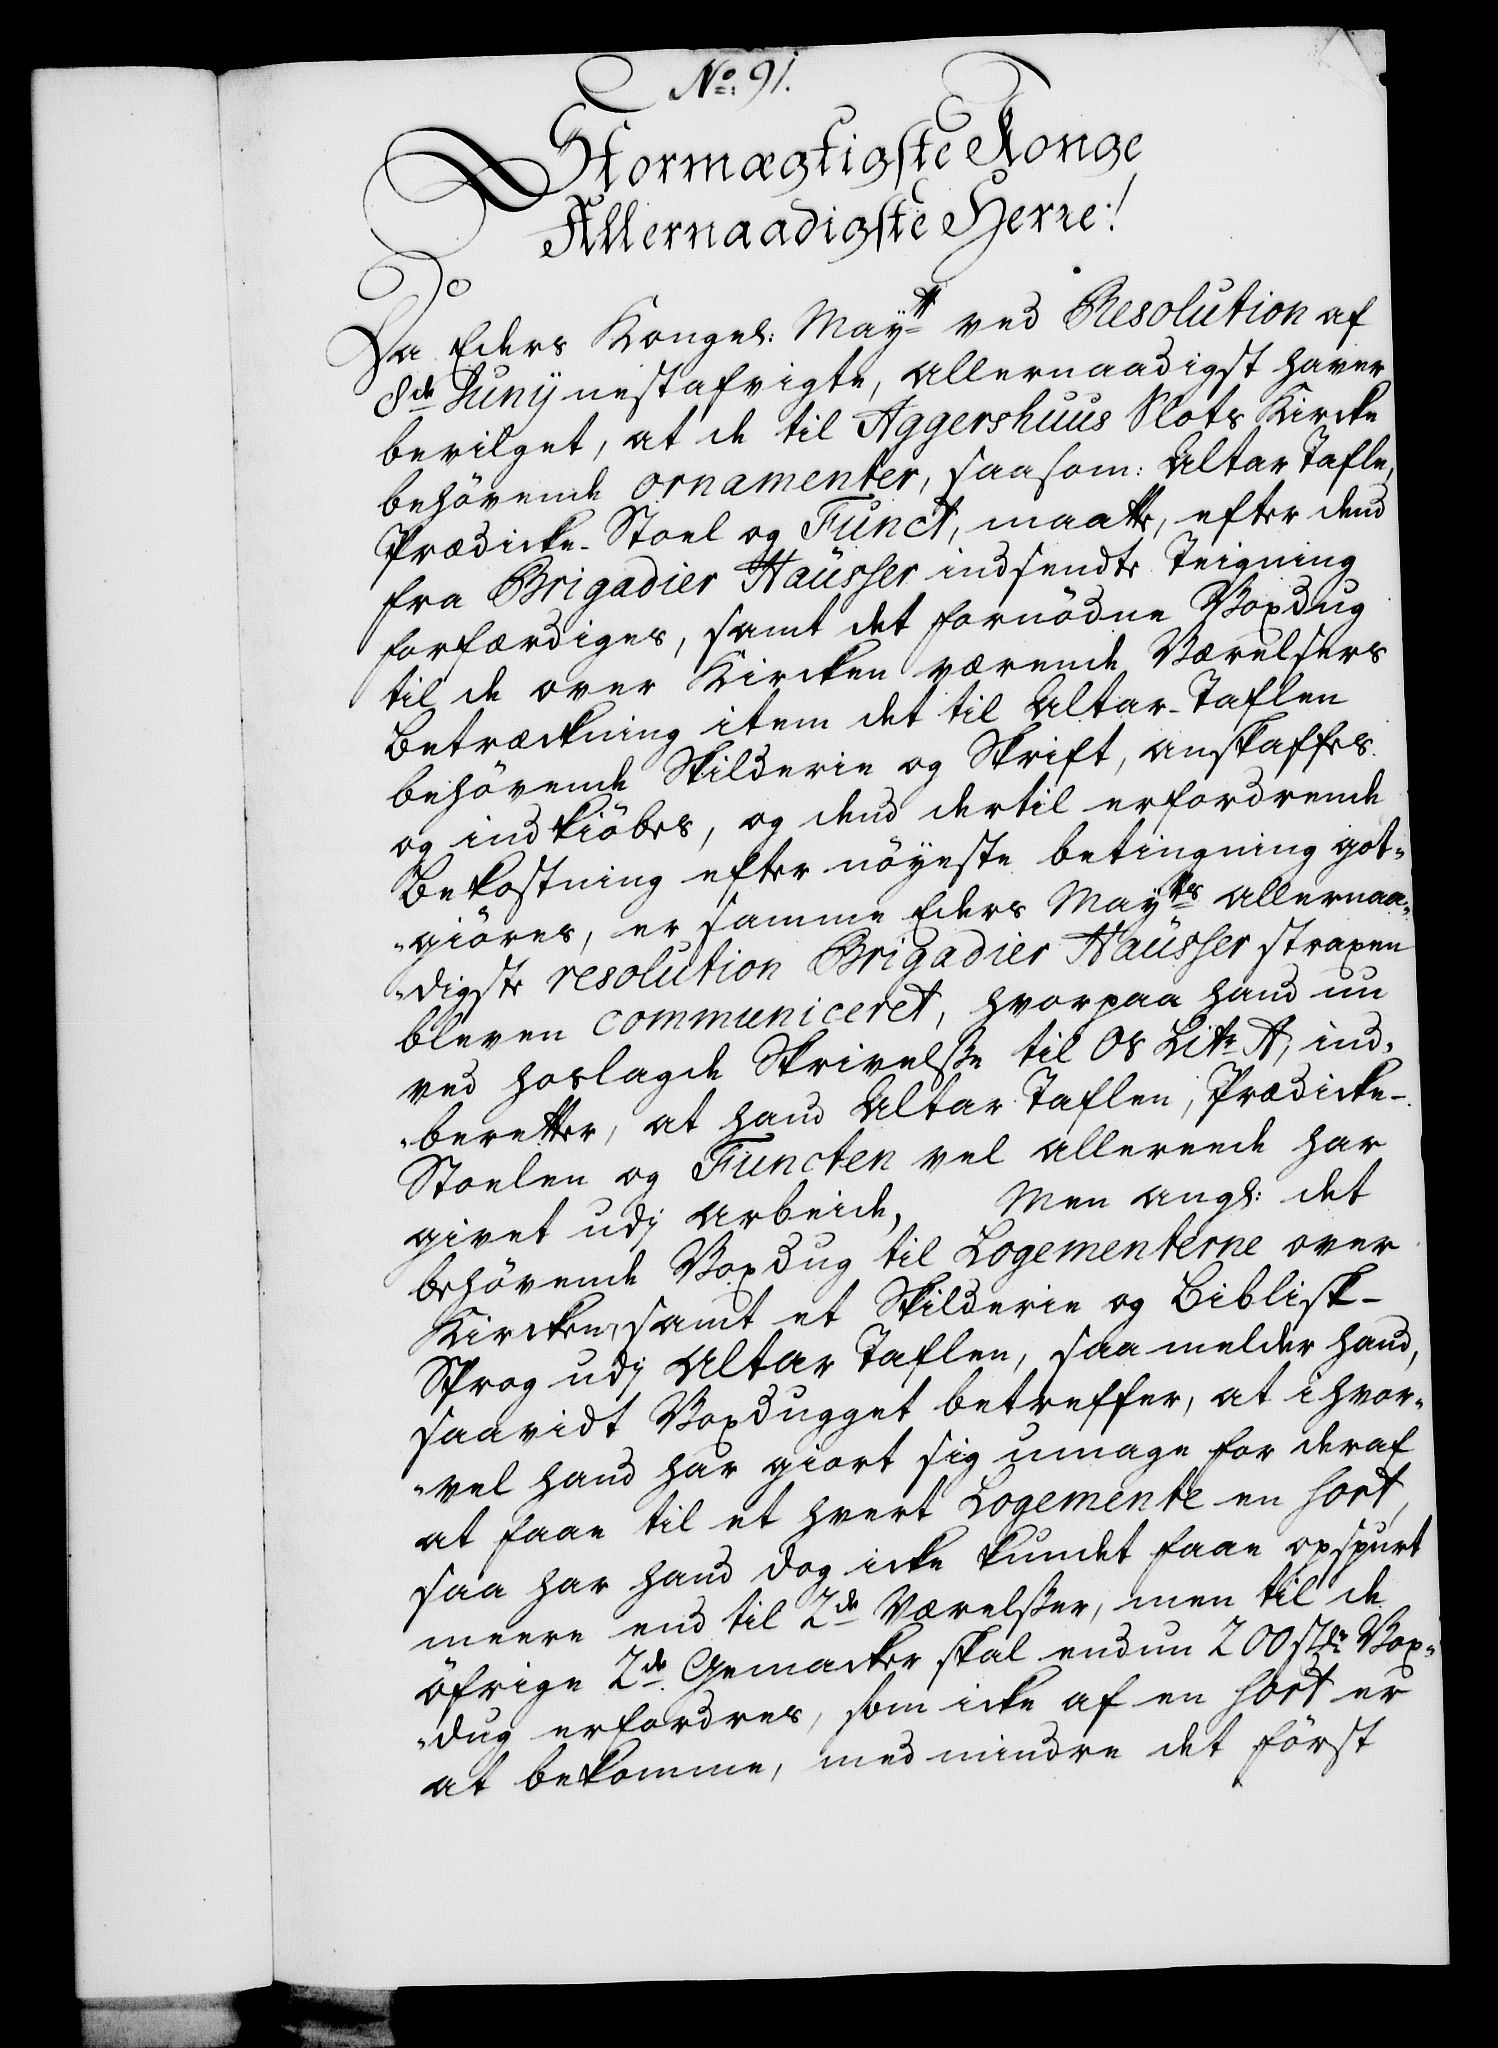 No: 91.
Stormægtigste Konge
Allernaadigste Herre!
Da Eders Kongel: Maytt ved Resolution af
8de Junij nestafvigte, allernaadigst haver
bevilget, at de til Aggershuus Slots Kircke
behövende ornamenter, saasom: Altar Tafle,
Prædicke-Stoel og Funct, maatte, efter dend
fra Brigadier Häusser indsendte Teigning
forfærdiges, samt det fornödne Voxdug
til de over Kircken værende Værelsers
Betræckning item det til Altar-Taflen
behövende Skilderie og Skrift, anskaffes
og indkiöbes, og dend dertil erfordrende
Bekostning efter nöyeste betingning got-
-giöres, er samme Eders Maytts allernaa-
-digste resolution Brigadier Häusser straxen
bleven communiceret, hvorpaa hand nu
ved hoslagde Skrivelße til Os Litr A, ind-
-beretter, at hand Altar Taflen, Prædicke-
Stoelen og Functen vel allereede har
givet udj Arbeide, Men angl: det
behövende Voxdug til Logementerne over
Kircken, samt et Skilderie og Biblisk-
Sprog udj Altar Taflen, saa melder hand,
saavidt Voxdugget betreffer, at ihvor-
-vel hand har giort sig umage for deraf
at faae til et hvert Logemente en sort,
saa har hand dog icke kundet faae opspurt
meere end til 2de Værelßer, men til de
öfrige 2de Gemacker skal endnu 200 stkr Vox-
-dug erfordres, som icke af en sort er
at bekomme, med mindre det först